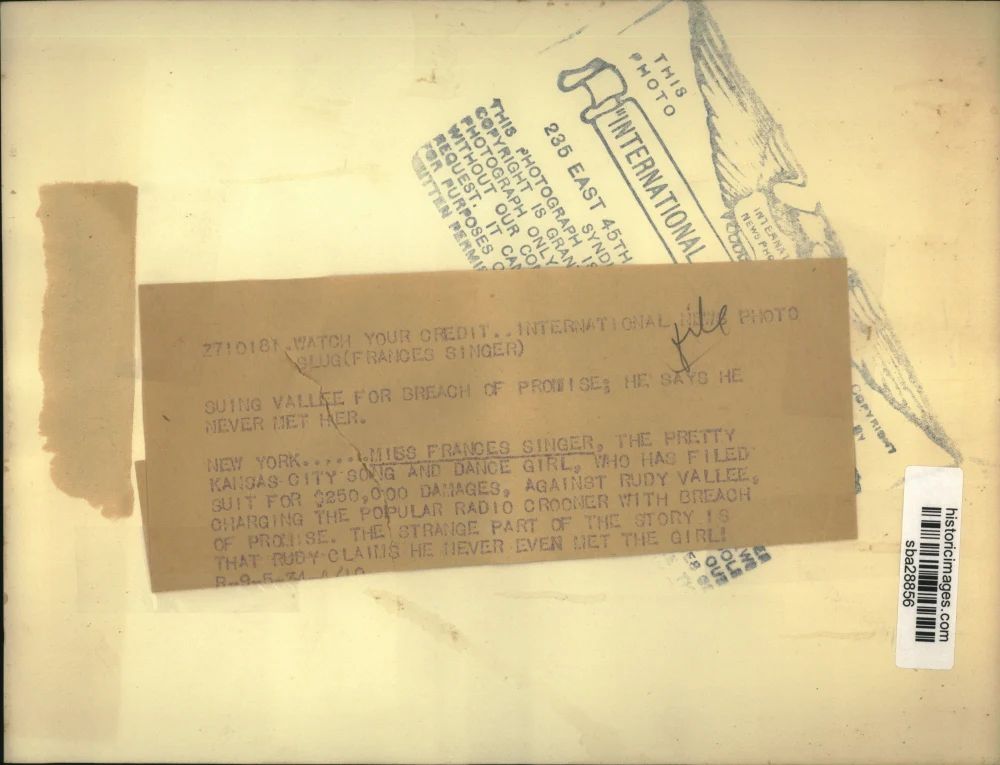 THIS
PHOTO
"INTERNATIONAL
235 EAST 45TH
THIS PHOTOGRAPH IS
COPYRIGHT IS GRAN
PHOTOGRAPH ONLY
WITHOUT OUR CO
REQUEST. IT CA
FOR PURPOSES O
WRITTEN PERMI
SYND
INTERNA
NEWS PH
2710181.WATCH YOUR CREDIT..INTERNATIONAL NEWS PHOTO
SLUG(FRANCES SINGER)
Kill
SUING VALLEE FOR BREACH OF PROMISE; HE SAYS HE
NEVER MET HER.
NEW YORK......MISS FRANCES SINGER, THE PRETTY
KANSAS CITY SONG AND DANCE GIRL, WHO HAS FILED
SUIT FOR $250,000 DAMAGES, AGAINST RUDY VALLEE,
CHARGING THE POPULAR RADIO CROONER WITH BREACH
OF PROMISE. THE STRANGE PART OF THE STORY IS
THAT RUDY CLAIMS HE NEVER EVEN MET THE GIRL!
COPYRIGHT
BY
OUT
historicimages.com
sba28856